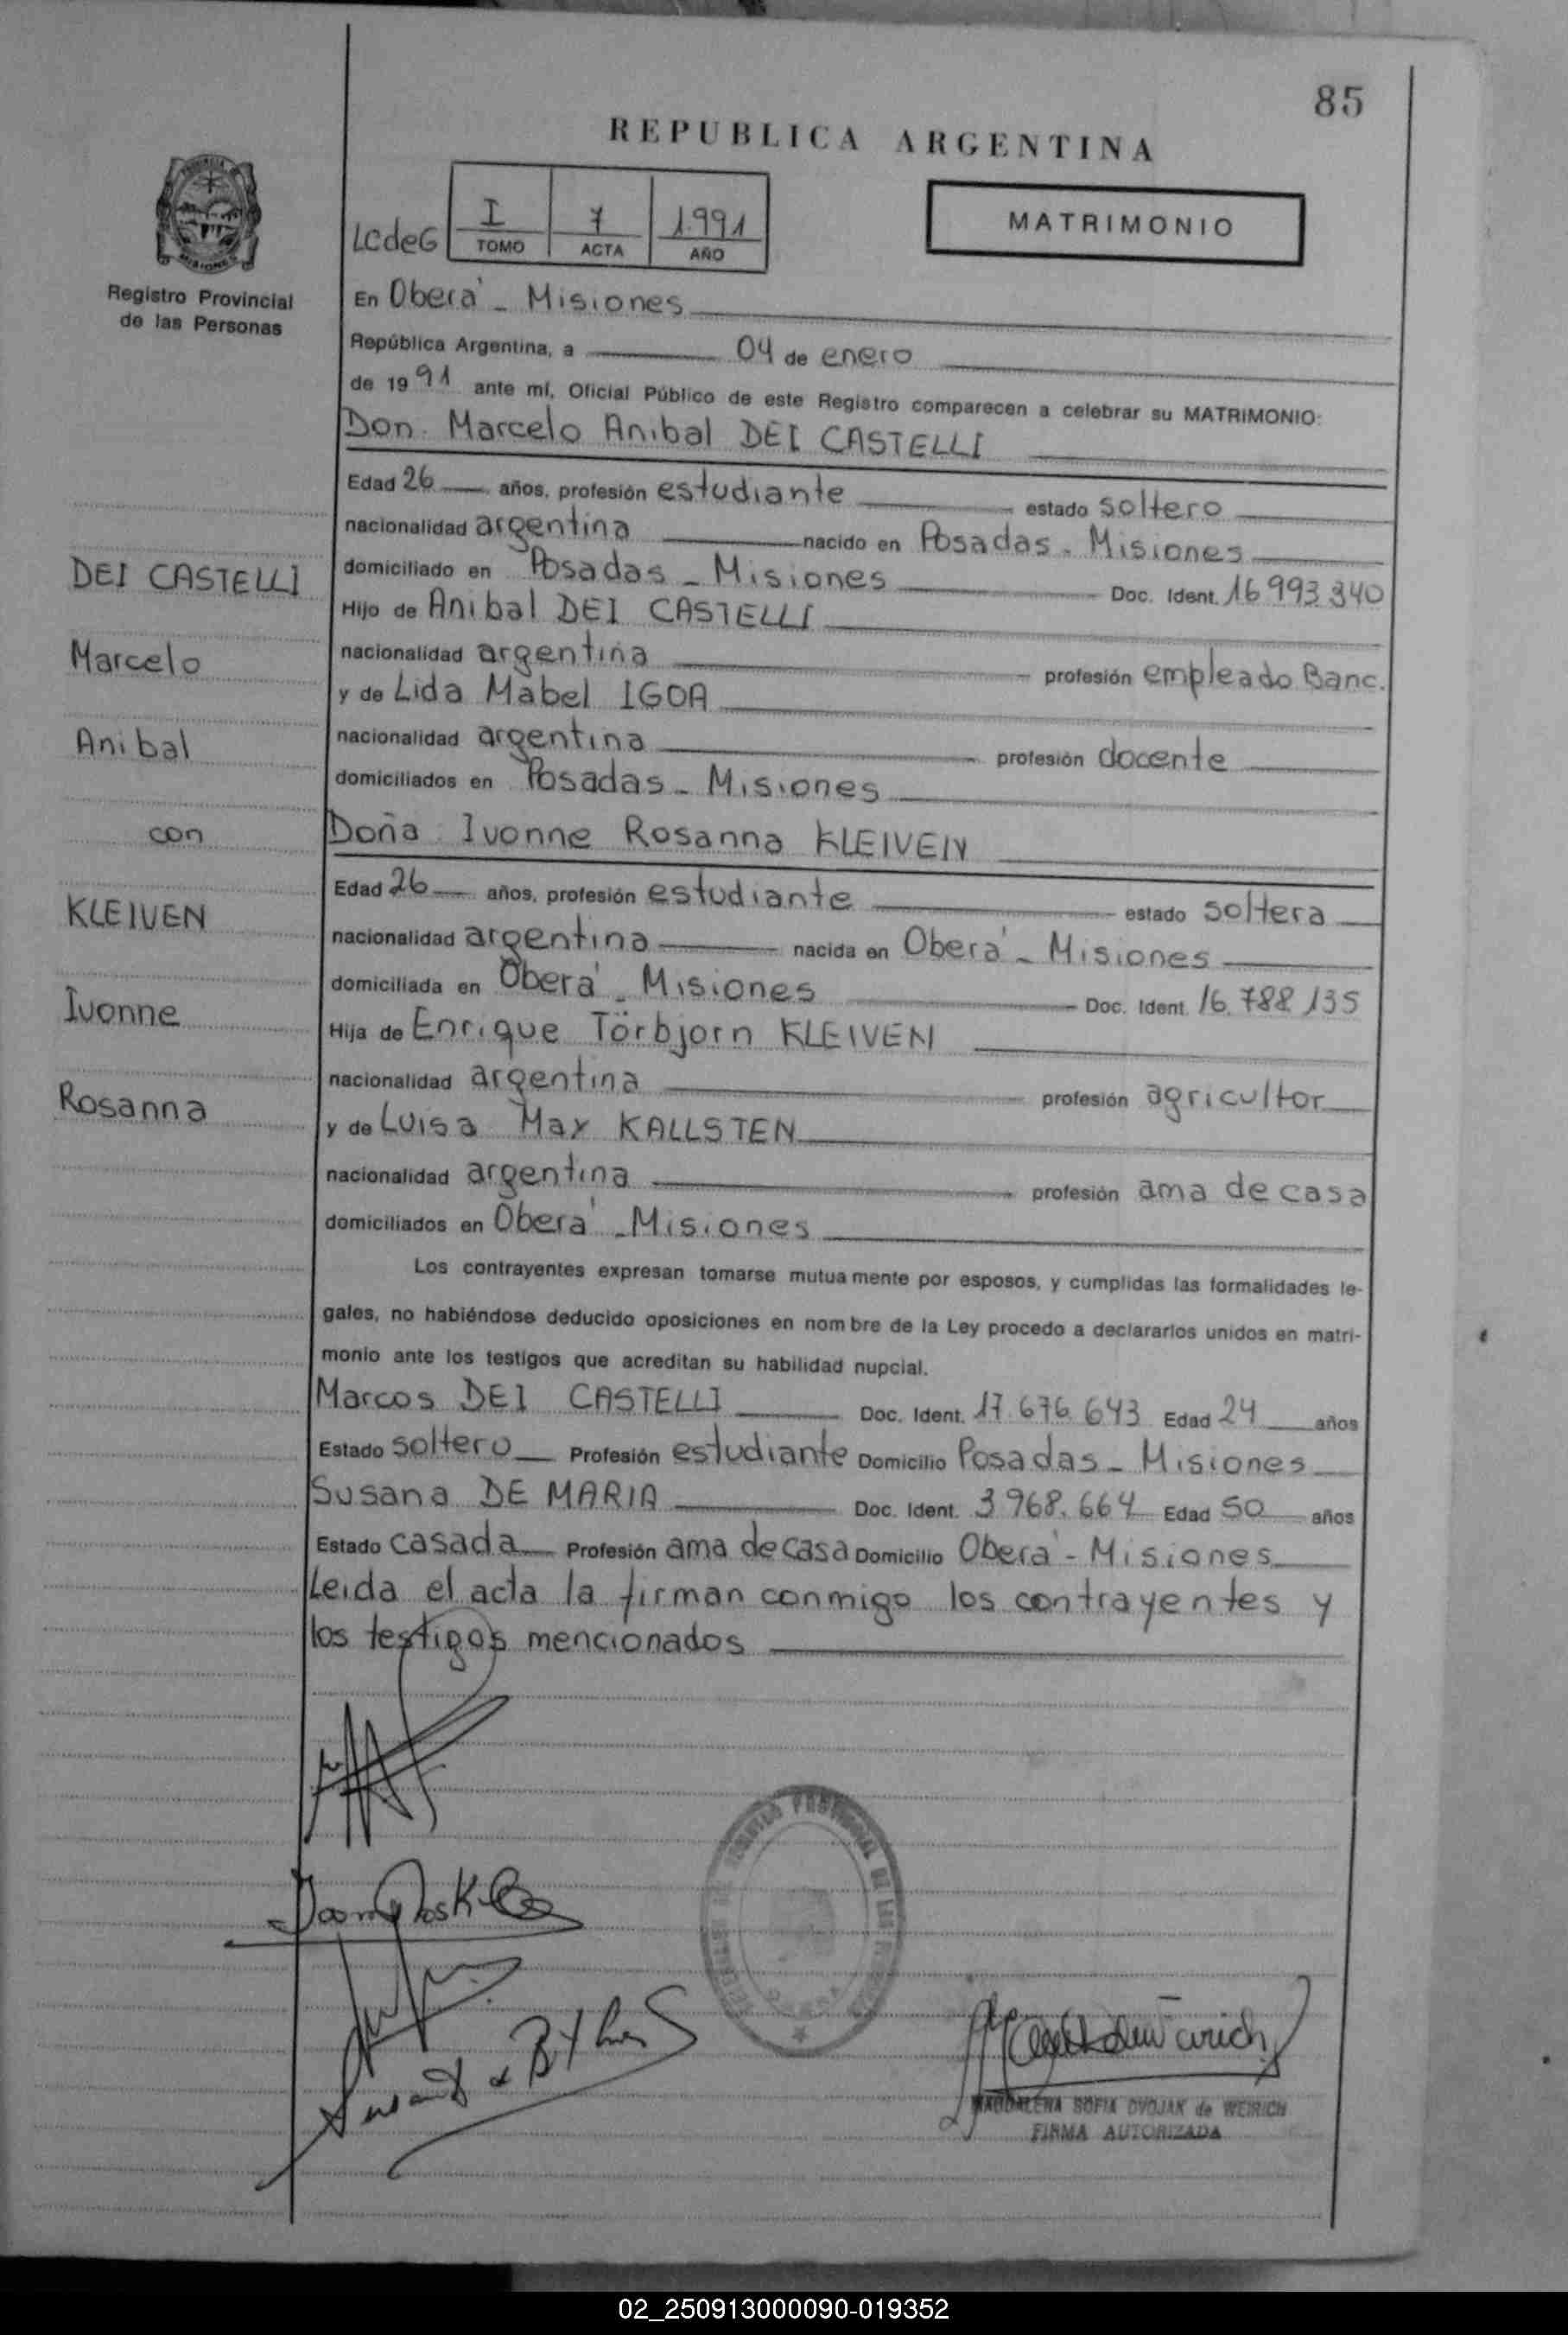 85
REPUBLICA ARGENTINA
PROVINCIA
MISIONES
Registro Provincial
de las Personas
LCdeG
I 7 1.991
TOMO ACTA AÑO
MATRIMONIO
En Oberá - Misiones
República Argentina, a 04 de enero
de 19 91 ante mí, Oficial Público de este Registro comparecen a celebrar su MATRIMONIO:
Don Marcelo Anibal DEI CASTELLI
Edad 26 años, profesión estudiante estado soltero
nacionalidad argentina nacido en Posadas - Misiones
domiciliado en Posadas - Misiones Doc. Ident. 16 993 340
Hijo de Anibal DEI CASTELLI
nacionalidad argentina profesión empleado Banc.
y de Lida Mabel IGOA
nacionalidad argentina profesión docente
domiciliados en Posadas - Misiones
Doña Ivonne Rosanna KLEIVEN
Edad 26 años, profesión estudiante estado soltera
nacionalidad argentina nacida en Oberá - Misiones
domiciliada en Oberá - Misiones Doc. Ident. 16.788.135
Hija de Enrique Törbjorn KLEIVEN
nacionalidad argentina profesión agricultor
y de Luisa May KALLSTEN
nacionalidad argentina profesión ama de casa
domiciliados en Oberá - Misiones
Los contrayentes expresan tomarse mutuamente por esposos, y cumplidas las formalidades le-
gales, no habiéndose deducido oposiciones en nombre de la Ley procedo a declararlos unidos en matri-
monio ante los testigos que acreditan su habilidad nupcial.
Marcos DEI CASTELLI Doc. Ident. 17.676.643 Edad 24 años
Estado soltero Profesión estudiante Domicilio Posadas - Misiones
Susana DE MARIA Doc. Ident. 3 968.664 Edad 50 años
Estado casada Profesión ama de casa Domicilio Oberá - Misiones
Leida el acta la firman conmigo los contrayentes y
los testigos mencionados
DEI CASTELLI
Marcelo
Anibal
con
KLEIVEN
Ivonne
Rosanna
PROVINCIAL DE LAS
MAGDALENA SOFIA DVOJAK de WEIRICH
FIRMA AUTORIZADA
02_250913000090-019352